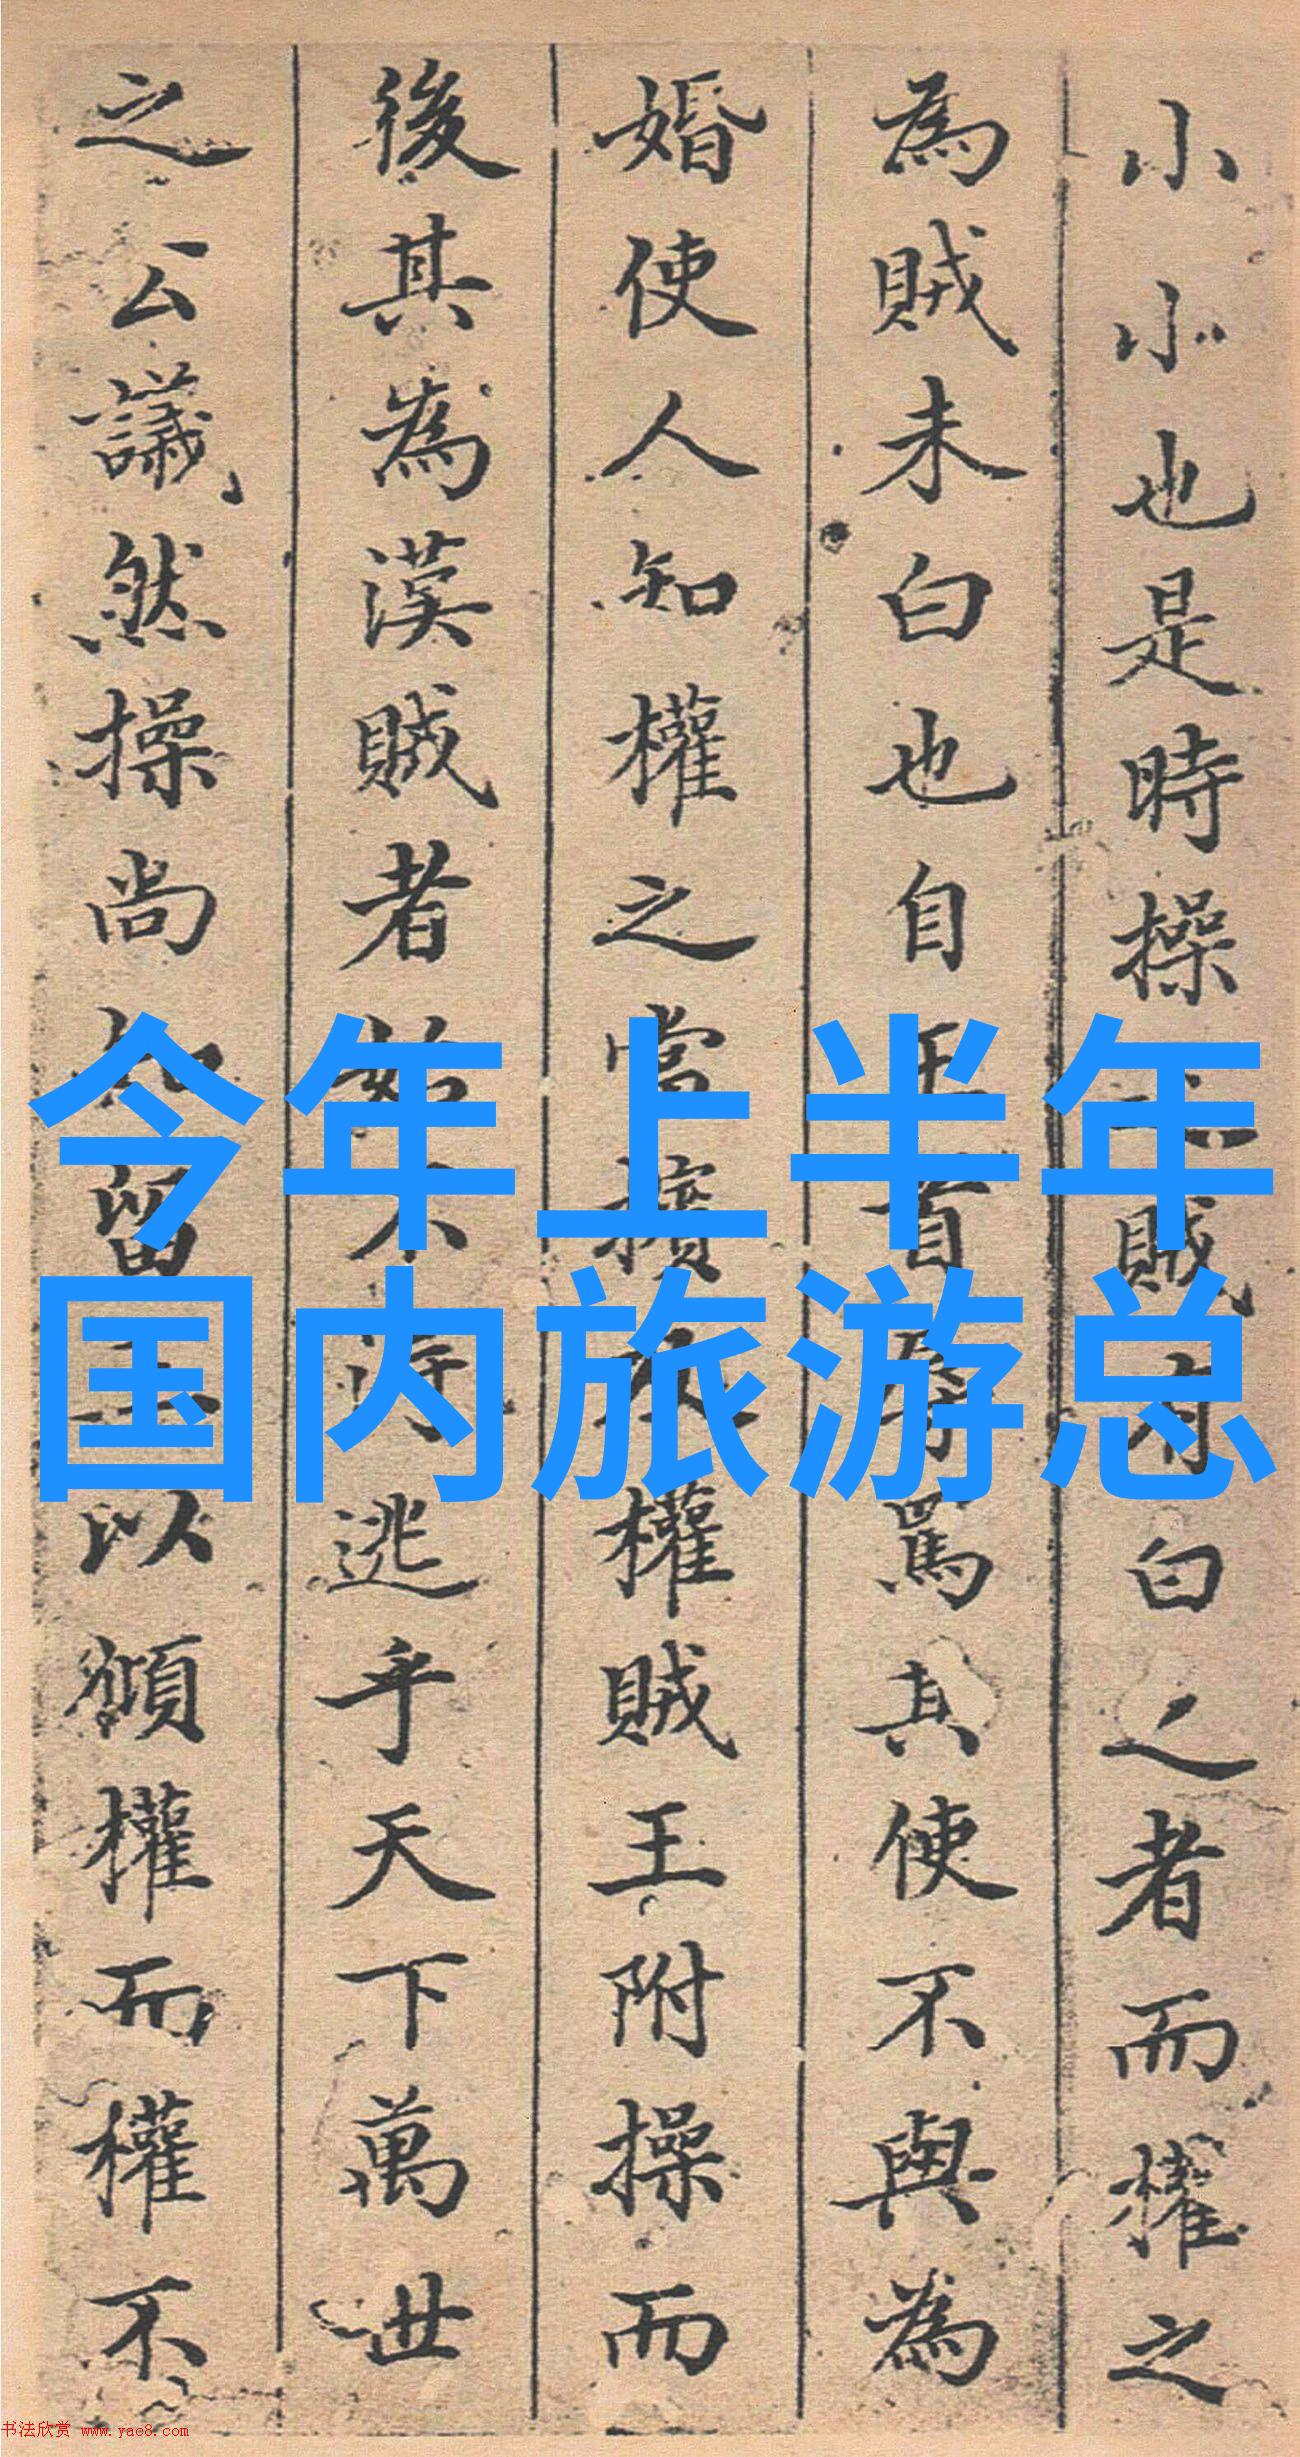 小小也是時操之賊有白之者而權之
為賊未白也自王肯為罵其使不與為
婚使人知權之當擯又權賊王附操而
後其為漢賊者始不得逃乎天下萬世
之公議然操尚知留以顉權而權不
今年上半年
国内旅游总
书法欣赏 www.yac8.com